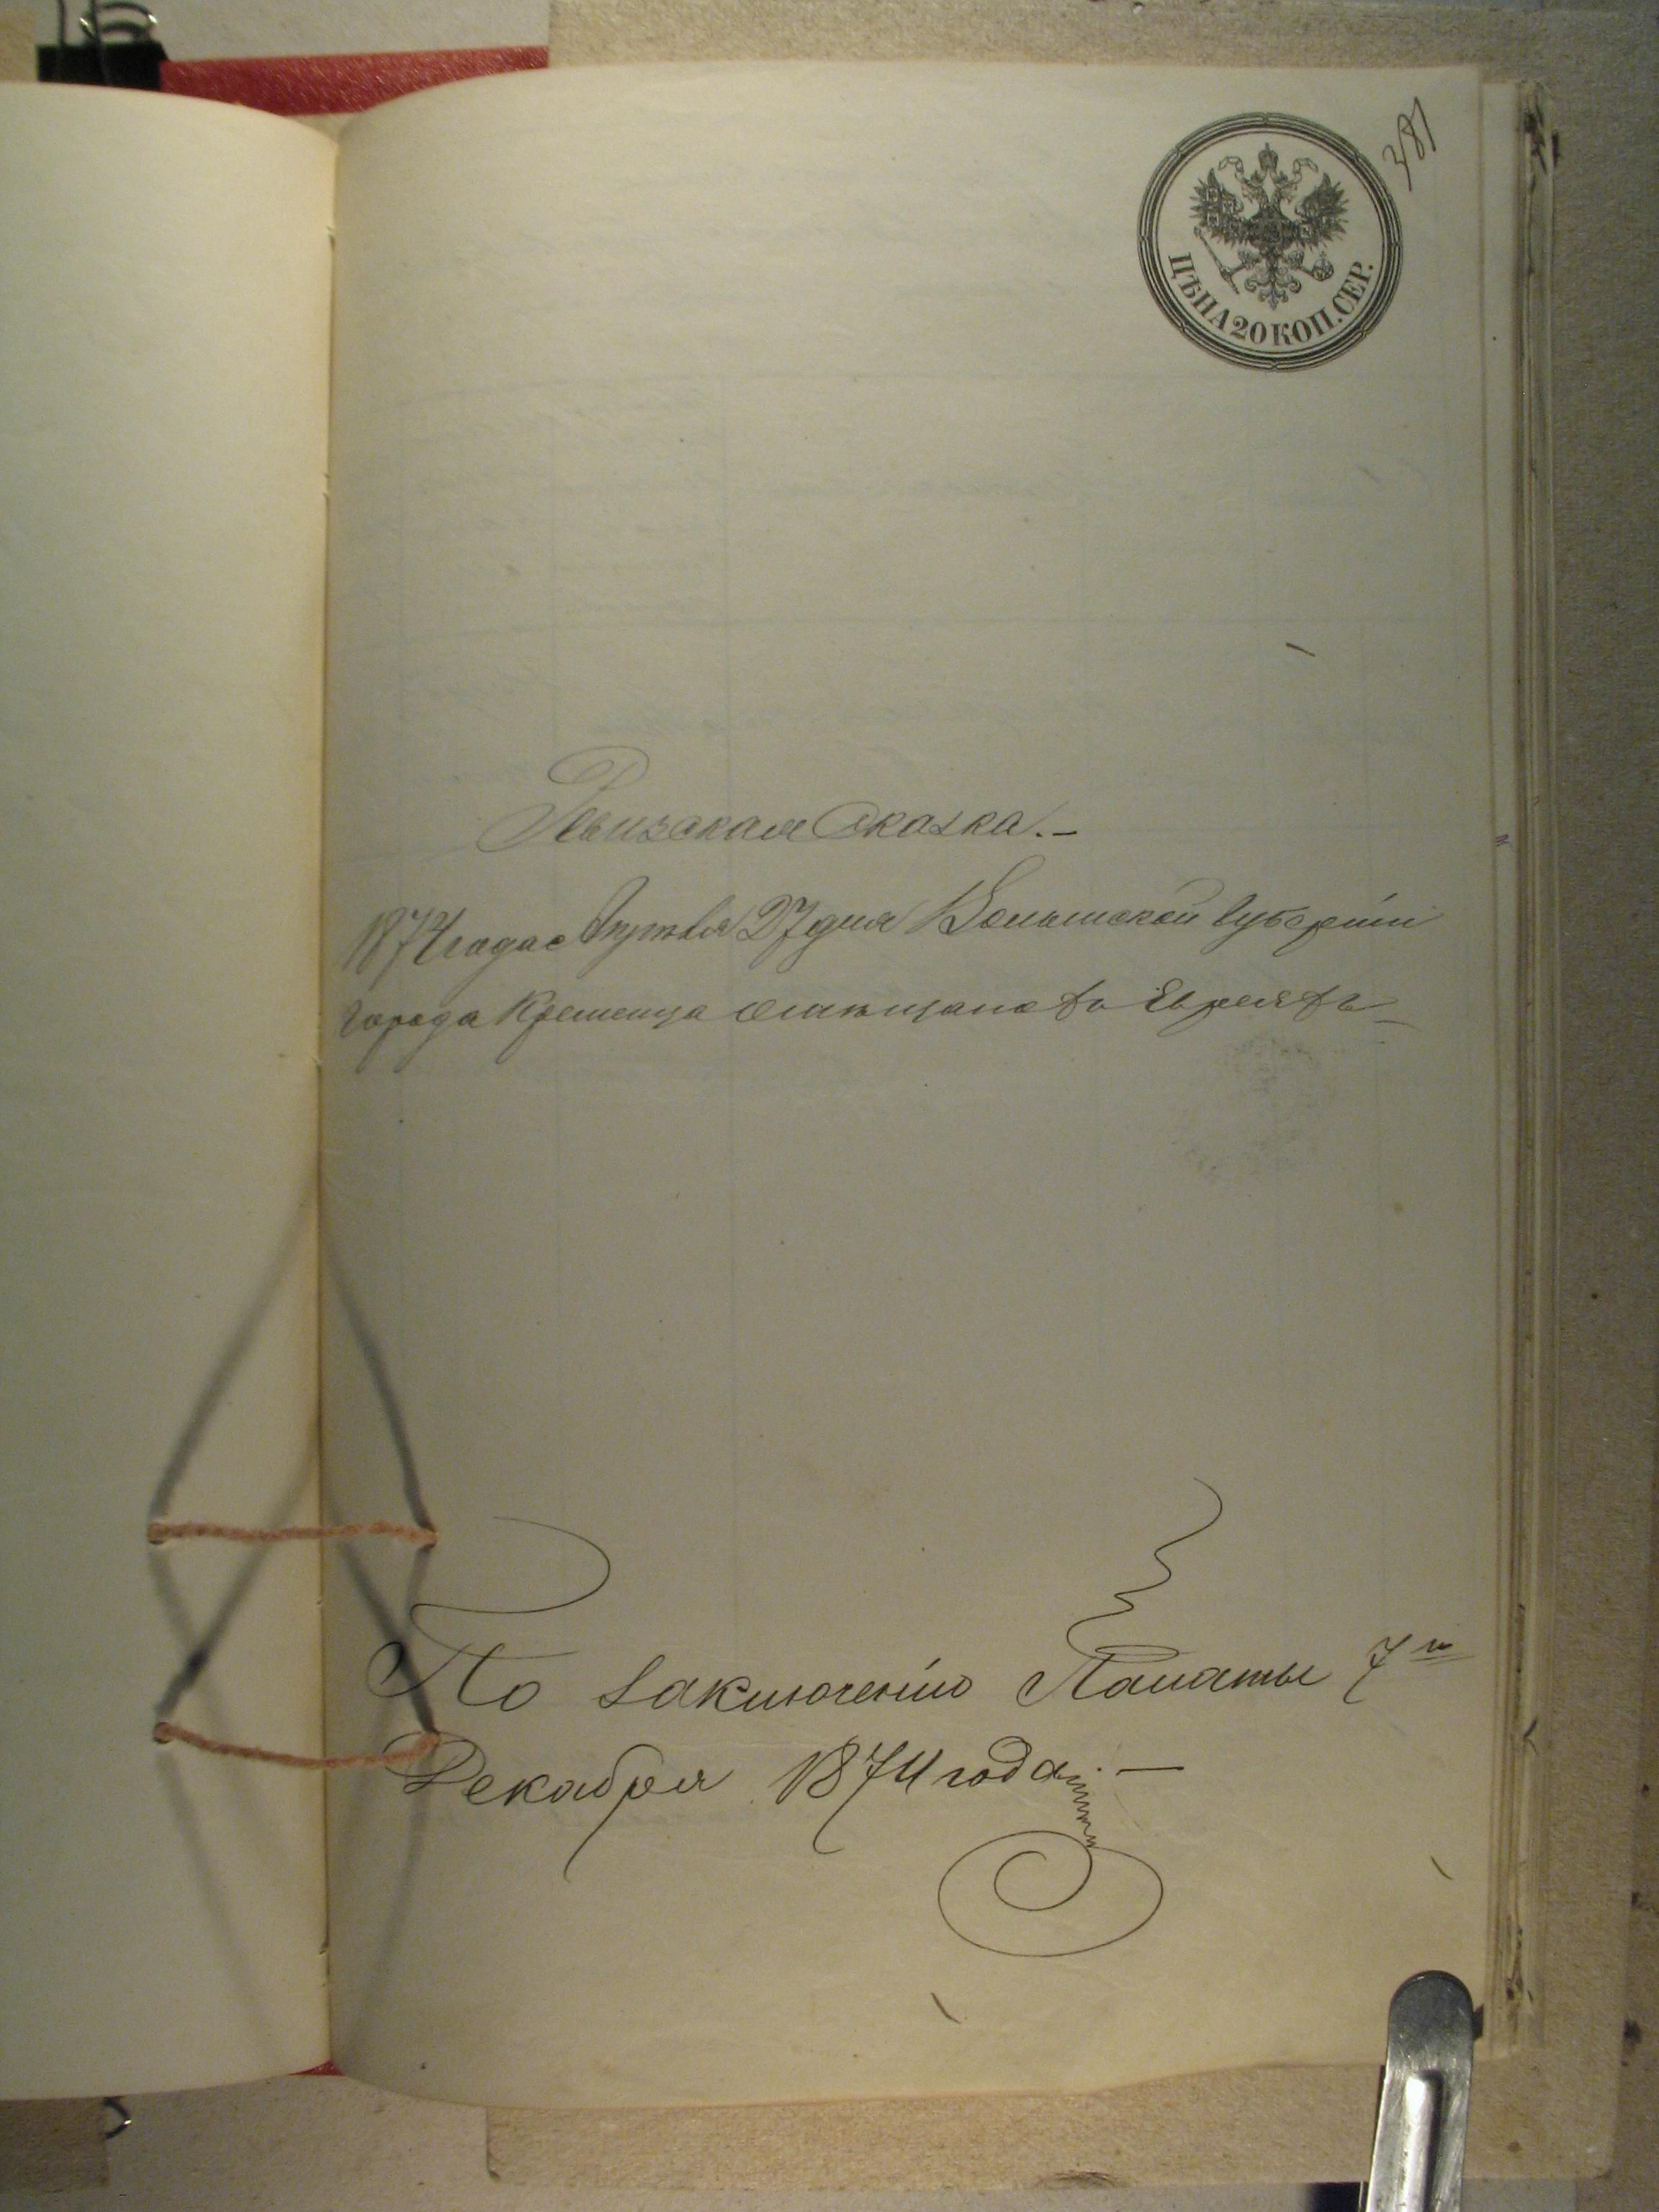 381
ЦѢНА 20 КОП. СЕР.
Ревизская Сказка.-
1874 года 27 дня Волынской Губерніи
города Кременца Евреяхъ
По заключенію Палаты 7го
Декабря 1874 года. —